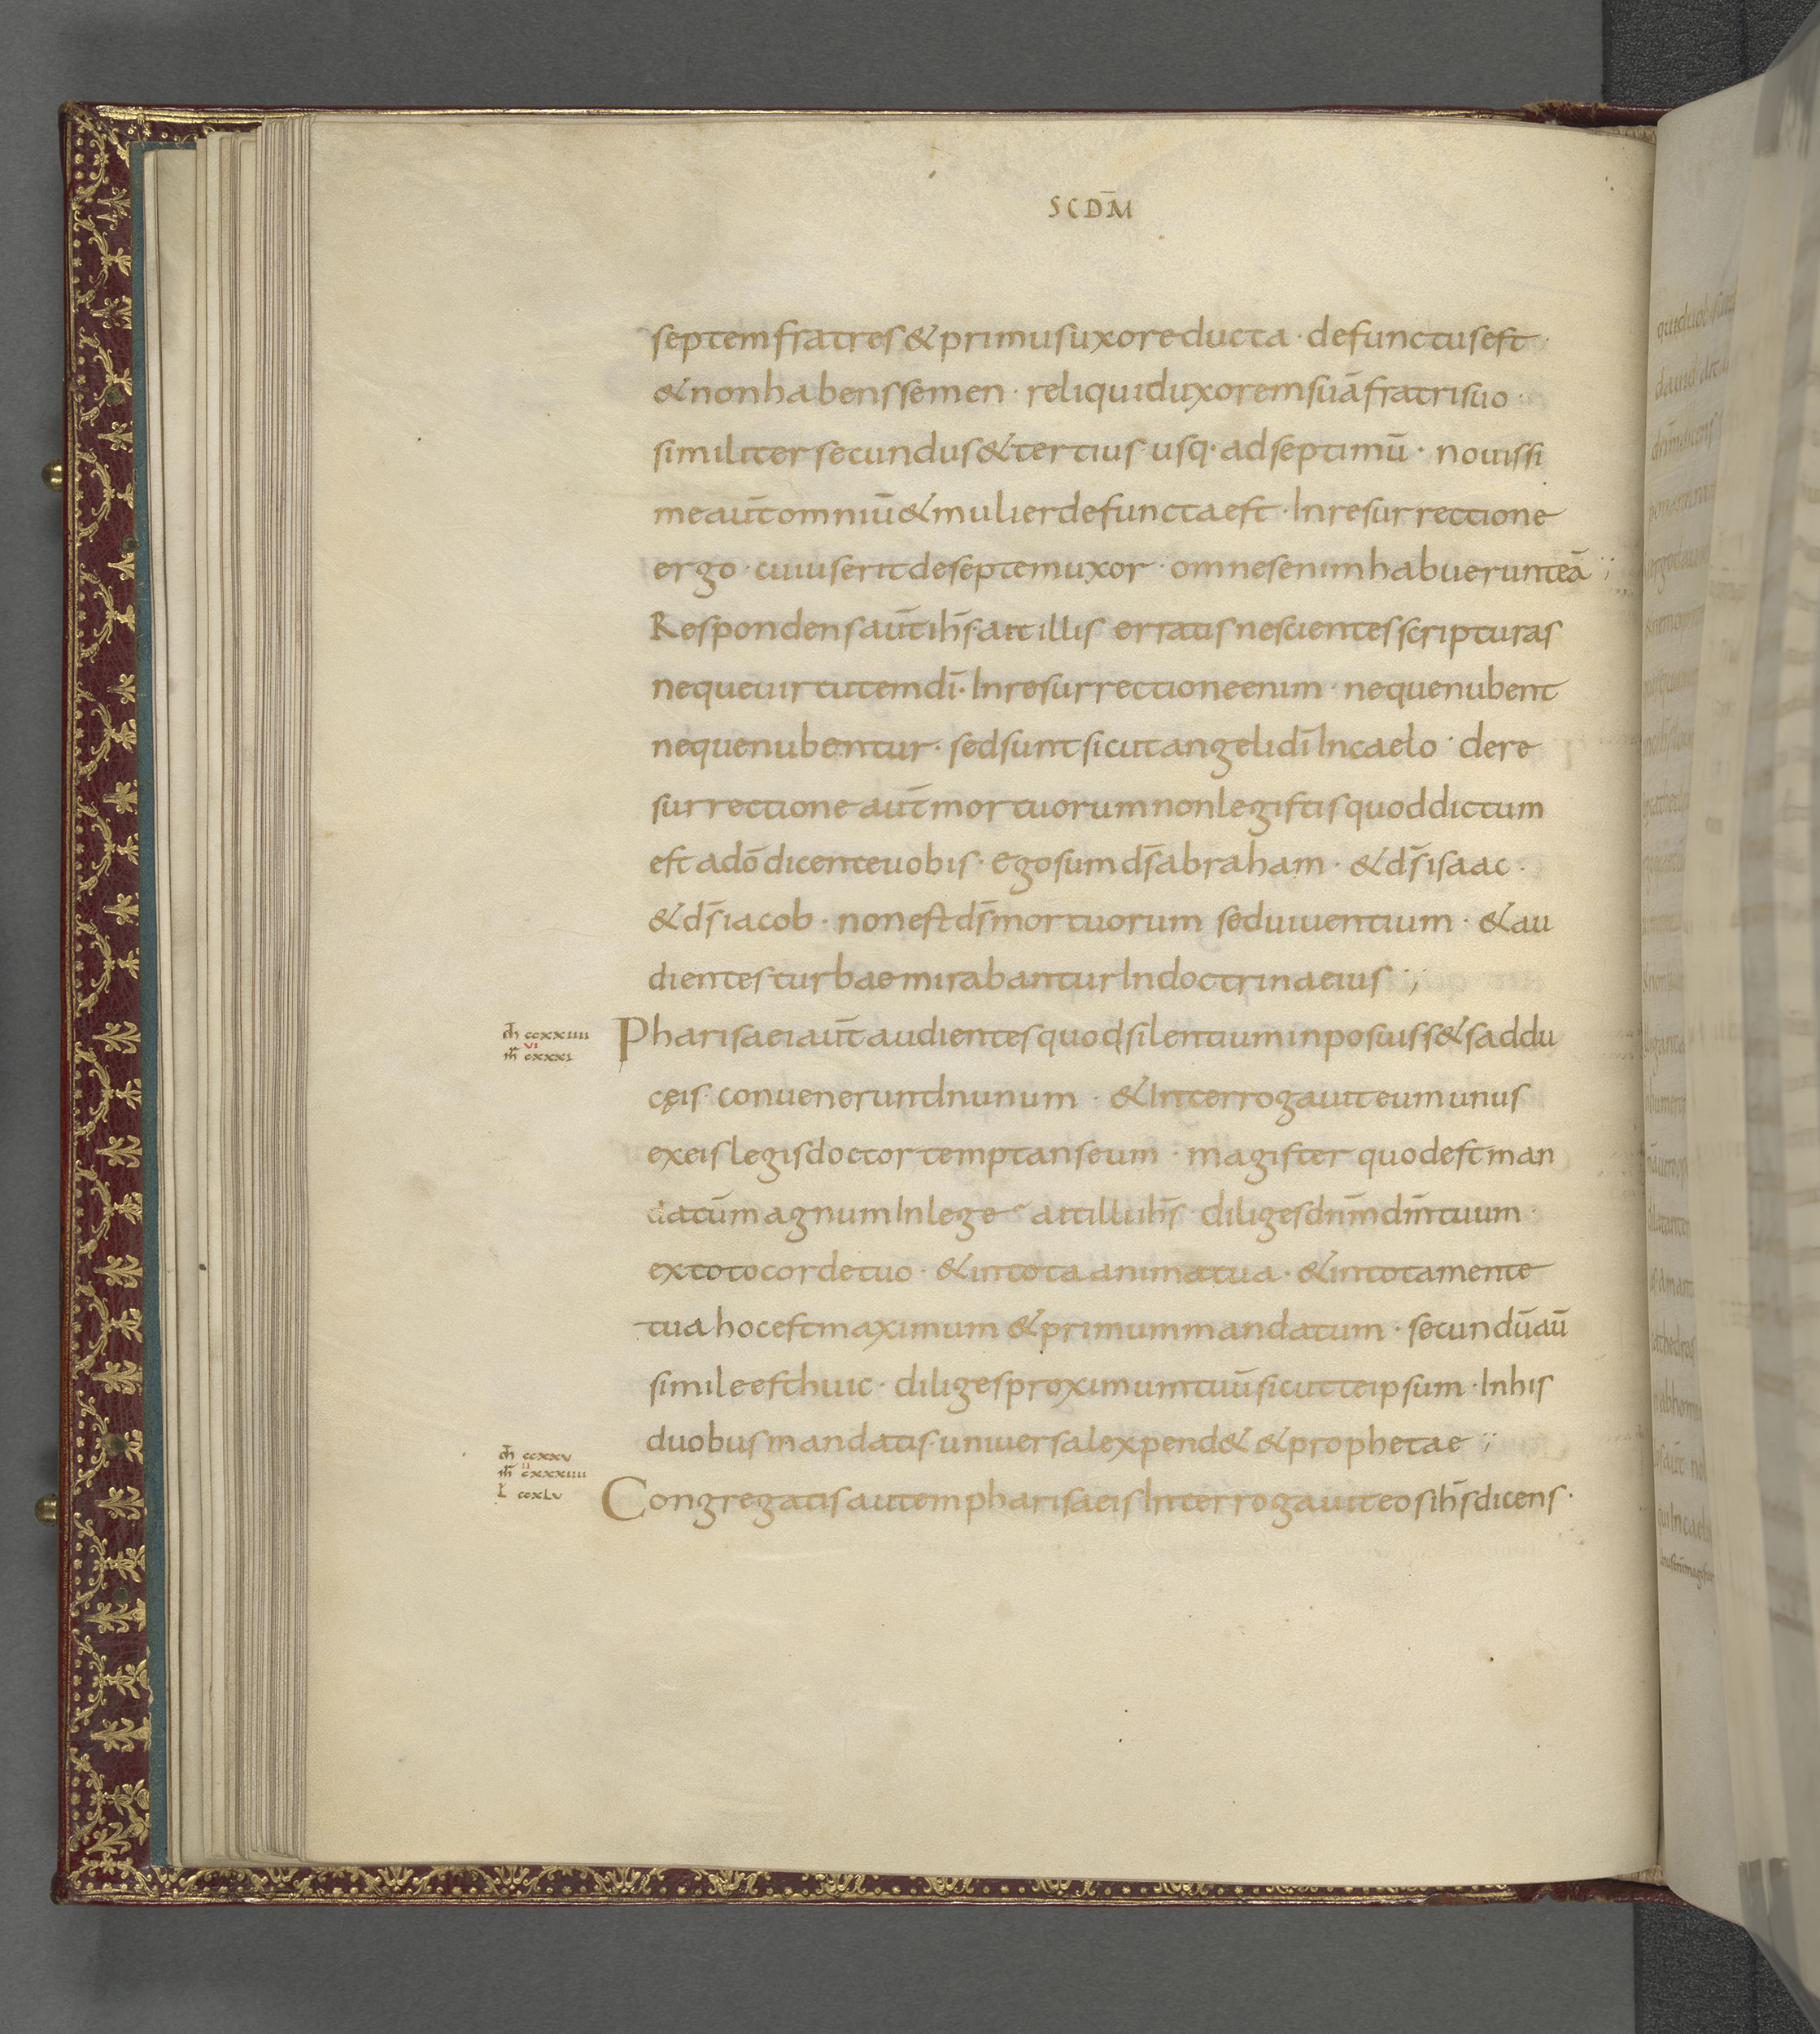 SCDM̄
septem fratres & primus uxore ducta · defunctus est ·
& non habens semen · reliquid uxorem suā fratri suo ·
similiter secundus & tertius · usq· ad septimū · nouissi
me aūt omniū & mulier defuncta est · In resurrectione
ergo · cuius erit de septem uxor · omnes enim habuerunt eā ;
Respondens aūt ih̄s · ait illis erratis nescientes scripturas
neque uirtutem dī · In resurrectione enim · neque nubent
neque nubentur · sed sunt sicut angeli dī In caelo · de re
surrectione aūt mortuorum non legistis quod dictum
est a dō dicente uobis · ego sum ds̄ abraham · & ds̄ isaac ·
& ds̄ iacob · non est ds̄ mortuorum sed uiuentium · & au
dientes turbae mirabantur In doctrina eius ;
m̄ ccxxiiii
vi
m̄r cxxxi
Pharisaei aūt audientes quod silentium inposuiss& saddu
cęis · conuenerunt In unum · & Interrogauit eum unus
ex eis legis doctor temptans eum · magister quod est man
datūm agnum In lege · ait illi ih̄s · diliges dn̄m dm̄ tuum ·
ex toto corde tuo · & in tota anima tua · & in tota mente
tua hoc est maximum & primum mandatum · secundū aū
simile est huic · diliges proximum tuū sicut te ipsum · In his
duobus mandatis · uniuersa lex pend& & prophetae ;
m̄ ccxxv
ii
m̄r cxxxiiii
L ccxLv
Congregatis autem pharisaeis Interrogauit eos ih̄s dicens ·